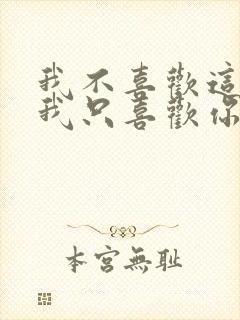 我不喜歡這
我只喜歡你
本宮無耻